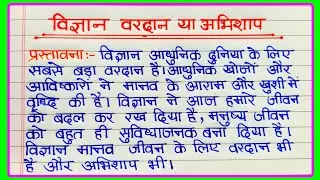 विज्ञान वरदान या अभिशाप
प्रस्तावना:- विज्ञान आधुनिक दुनिया के लिए
सबसे बड़ा वरदान है। आधुनिक खोजों और
आविष्कारों ने मानव के आराम और खुशी में
वृध्दि की है। विज्ञान ने आज हमारे जीवन
को बदल कर रख दिया है, मनुष्य जीवन
को बहुत ही सुविधाजनक बना दिया है।
विज्ञान मानव जीवन के लिए वरदान भी
है और अभिशाप भी।